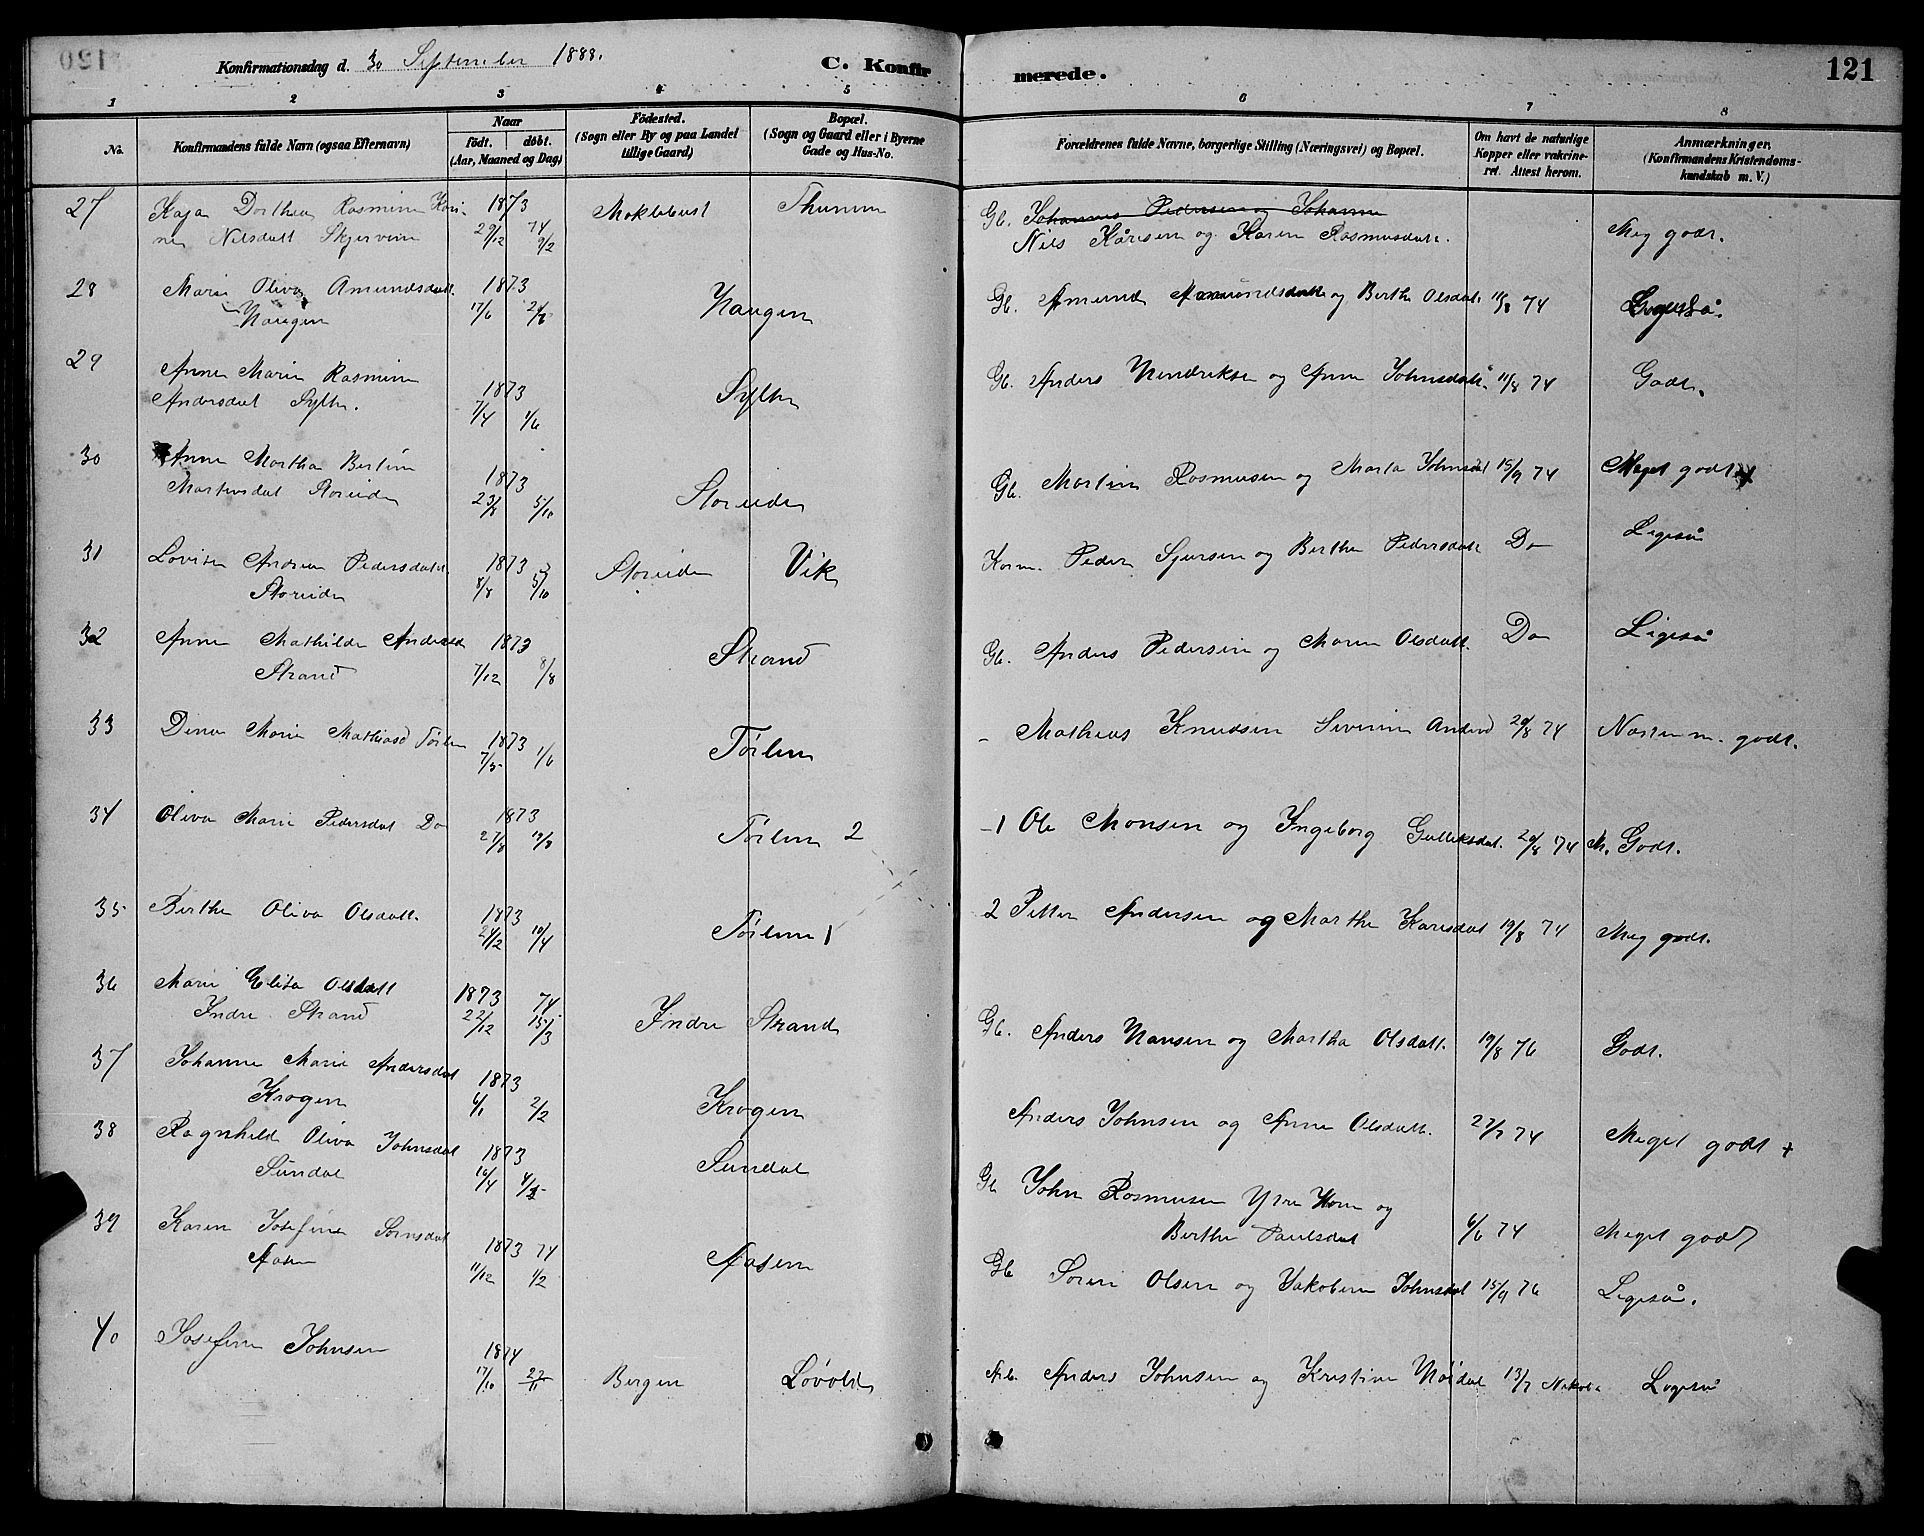 Konfirmationsdag d. 30 September 1888.
C. Konfirmerede.
121
1 2 3 4 5 6 7 8
No.
Konfirmandens fulde Navn (ogsaa Efternavn)
Naar
födt. döbt.
(Aar, Maaned og Dag)
Födested.
(Sogn eller By og paa Landet
tillige Gaard)
Bopæl.
(Sogn og Gaard eller i Byerne
Gade og Hus-No.
Forældrenes fulde Navne, borgerlige Stilling (Næringsvei) og Bopæl.
Om havt de naturlige
Kopper eller vakcine-
ret. Attest herom.
Anmærkninger.
(Konfirmandens Kristendoms-
kundskab m. V.)
27 Kaja Dorthea Rasmine 1873 Moklebust Gb. Johannes Pedersen og Johanne
Nilsdatt 29/12 74 9/2 Nils Kåresen og Karen Rasmusdatt. Meg godt.
28 Marie Oliva Amundsdatt. 1873 Haugen Gb. Amund Amundsdatt og Berthe Olsdatt. 11/8 74 Ligeså.
Haugen 17/6 2/8
29 Anne Marie Rasmine 1873 Sylte Gb. Anders Hendriksen og Anne Johnsdatt. 11/8 74 Godt.
Andersdat Sylte. 7/4 1/6
30 Anne Martha Bertine 1873 Storeide Gb. Martin Rasmusen og Marta Johnsdat 15/9 74 Meget godt +
Martinsdat Storeide 23/8 5/10
31 Lovise Andrea Pedersdatt. 1873 Storeide Vik Peder Sjursen og Berthe Pedersdatt Do Ligeså
Storeide 8/8 5/10
32 Anne Mathilde Andersd 1873 Strand Gb. Anders Pedersen og Maren Olsdatt. Do Ligeså
Strand 7/12 8/8
33 Dina Marie Mathiasd 1873 - Mathias Knudsen Severine Andersd 20/8 74 Næsten m. godt.
7/5 1/6
34 Oliva Marie Pedersdat Do 1873 2 - 1 Ole Monsen og Ingeborg Gulleksdat. 20/8 74 M. Godt.
27/8 19/8
35 Berthe Oliva Olsdatt. 1873 1 2 Petter Andersen og Marthe Karesdat 19/8 74 Meg godt.
24/2 10/4
36 Marie Elisa Olsdatt 1873 74 Indre Strand Gb. Anders Hansen og Martha Olsdatt. 19/8 76 Godt.
Indre Strand 22/12 15/3
37 Johanne Marie Andersdat 1873 Krogen Anders Johnsen og Anne Olsdatt. 27/7 74 Meget godt +
Krogen 6/1 2/2
38 Ragnhilde Oliva Johnsdat 1873 Sundal Gb John Rasmusen Ytre og
Sundal 16/4 Berthe Paulsdat 6/6 74 Meget godt
39 Karen Josefine Sørnsdat 1873 74 Aasen Gb Søren Olsen og Jakobine Johnsdat 15/9 76 Ligeså.
Aasen 11/12 1/2
40 Josefine Johnsen 1874 Bergen Løvold Arb. Anders Johnsen og Kristine 13/7 Ligeså
17/10 22/11